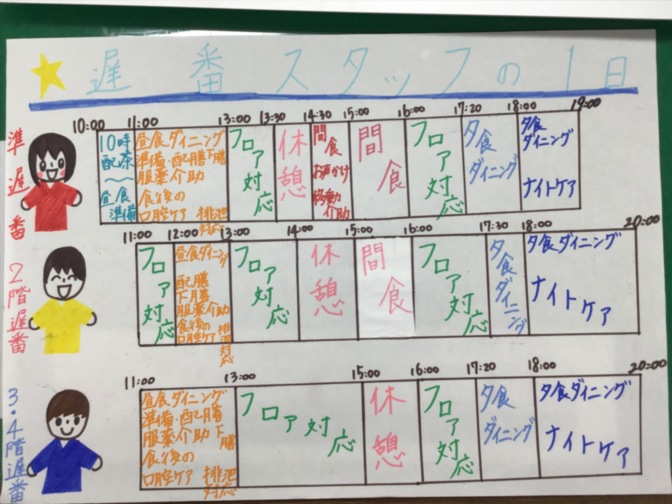 遅番スタッフの1日
準遅番
10:00 11:00 13:00 13:30 14:30 15:00 16:00 17:20 18:00 19:00
10時
配茶
〜
昼食
準備
昼食ダイニング
準備・配膳下膳
服薬介助
食後の
口腔ケア 排泄
対応
フロア対応
休憩
間食
お声かけ
移動
介助
間食
フロア対応
夕食
ダイニング
夕食
ダイニング
ナイトケア
2階遅番
11:00 12:00 13:00 14:00 15:00 16:00 17:30 18:00 20:00
フロア対応
昼食ダイニング
配膳
下膳
服薬介助
食後の
口腔ケア 排泄
対応
フロア対応
休憩
間食
フロア対応
夕食ダイニング
夕食ダイニング
ナイトケア
3・4階遅番
11:00 13:00 15:00 16:00 17:20 18:00 20:00
昼食ダイニング
準備・配膳
服薬介助 下膳
食後の
口腔ケア 排泄
対応
フロア対応
休憩
フロア対応
夕食
ダイニング
夕食ダイニング
ナイトケア